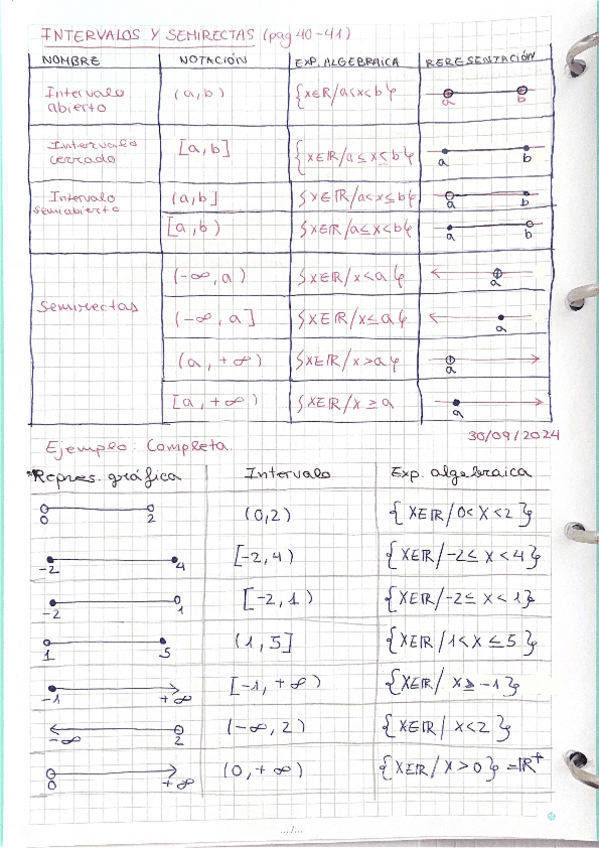 INTERVALOS Y SEMIRECTAS (pag 40-41)
NOMBRE NOTACIÓN EXP. ALGEBRAICA RERESENTACIÓN
Intervalo abierto (a,b) {x∈ℝ/a<x<b} a b
Intervalo cerrado [a,b] {x∈ℝ/a≤x≤b} a b
Intervalo semiabierto (a,b] {x∈ℝ/a<x≤b} a b
[a,b) {x∈ℝ/a≤x<b} a b
Semirectas (-∞,a) {x∈ℝ/x<a} a
(-∞,a] {x∈ℝ/x≤a} a
(a,+∞) {x∈ℝ/x>a} a
[a,+∞) {x∈ℝ/x≥a a
30/09/2024
Ejemplo: Completa.
Repres. gráfica Intervalo Exp. algebraica
0 2 (0,2) {x∈ℝ/0<x<2}
-2 4 [-2,4) {x∈ℝ/-2≤x<4}
-2 1 [-2,1) {x∈ℝ/-2≤x<1}
1 5 (1,5] {x∈ℝ/1<x≤5}
-1 +∞ [-1,+∞) {x∈ℝ/x≥-1}
-∞ 2 (-∞,2) {x∈ℝ/x<2}
0 +∞ (0,+∞) {x∈ℝ/x>0}=ℝ⁺
.../...